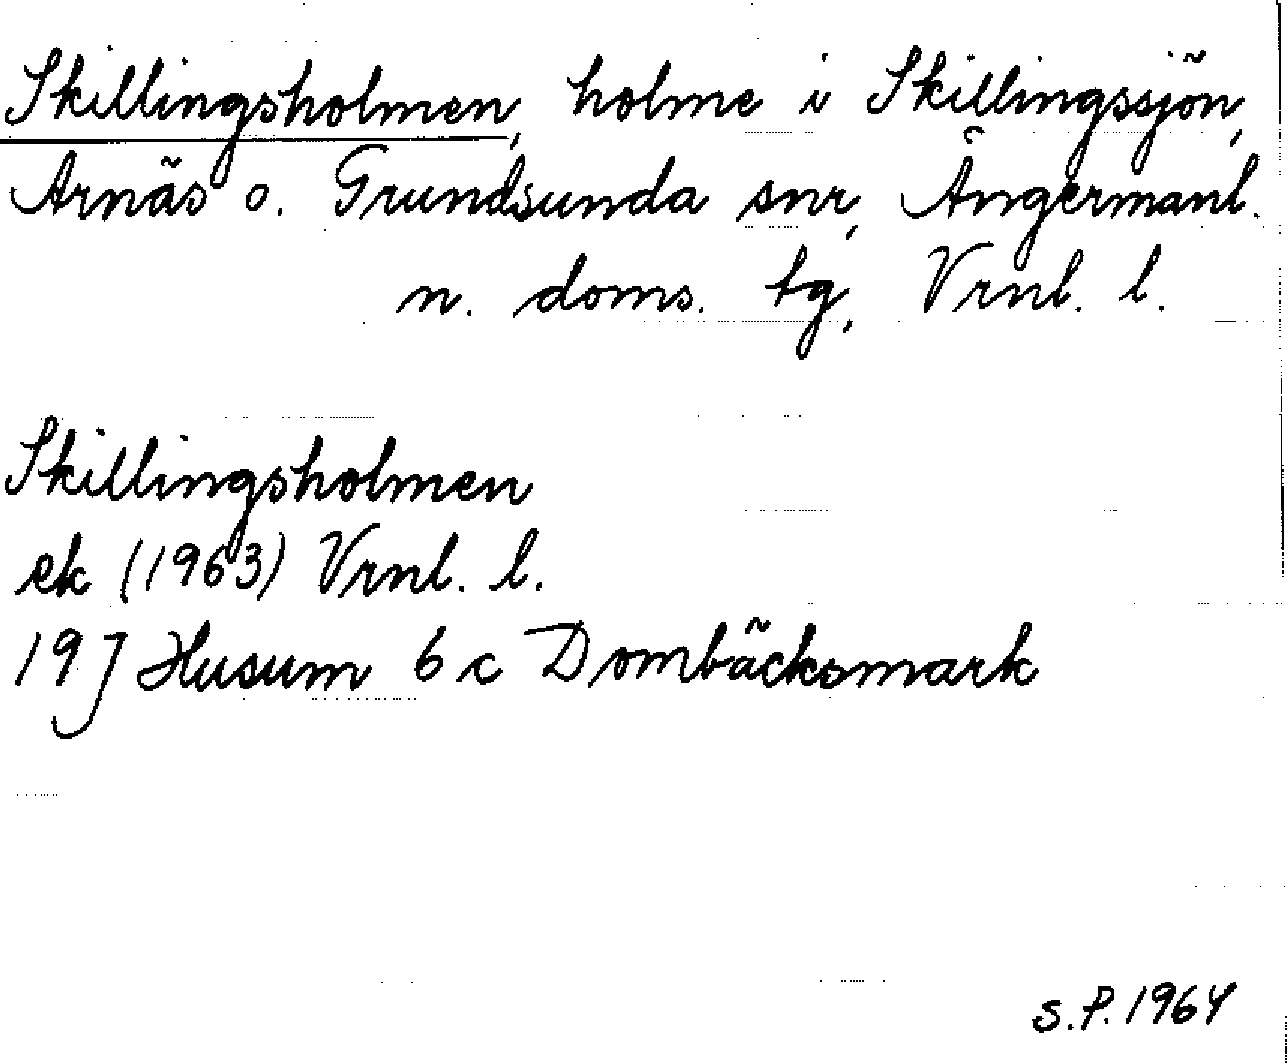 Skillingsholmen, holme i Skillingssjön,
Arnäs o. Grundsunda snr, Ångermanl.
n. doms. tg, Vrnl. l.
Skillingsholmen
ek (1963) Vrnl. l.
19 J Husum 6 c Dombäcksmark
S.P. 1964